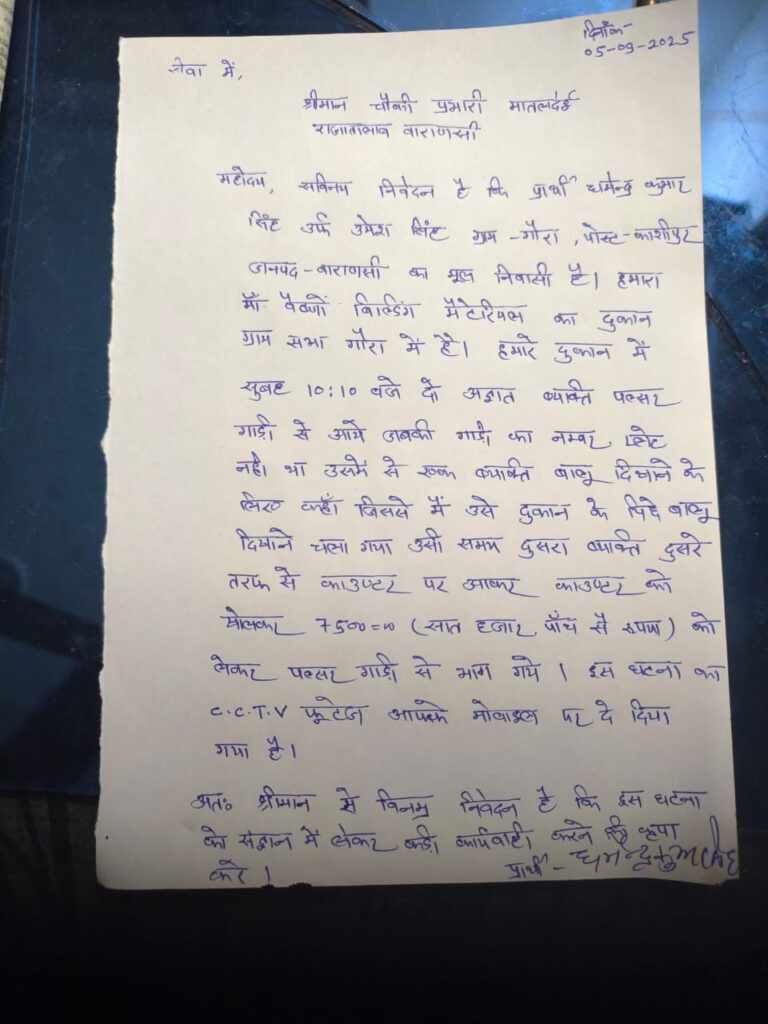 दिनाँक-
05-09-2025
सेवा में,
श्रीमान चौकी प्रभारी मातलदेई
राजातालाब वाराणसी
महोदय, सविनय निवेदन है कि प्रार्थी धर्मेन्द्र कुमार
सिंह उर्फ उमेश सिंह ग्राम -गौरा, पोस्ट-काशीपुर
जनपद-वाराणसी का मूल निवासी है। हमारा
माँ वैष्णों बिल्डिंग मैटेरियल का दुकान
ग्राम सभा गौरा में है। हमारे दुकान में
सुबह 10:10 बजे दो अज्ञात व्यक्ति पल्सर
गाड़ी से आये जबकी गाड़ी का नम्बर प्लेट
नही था उसमें से एक व्यक्ति बालू दिखाने के
लिए कहाँ जिससे मैं उसे दुकान के पिछे बालू
दिखाने चला गया उसी समय दुसरा व्यक्ति दुसरे
तरफ से काउण्टर पर आकर काउण्टर को
खोलकर 7500=00 (सात हजार पाँच सै रुपया) को
लेकर पल्सर गाड़ी से भाग गये। इस घटना का
C.C.T.V फूटेज आपके मोबाइल पर दे दिया
गया है।
अतः श्रीमान से विनम्र निवेदन है कि इस घटना
को संज्ञान में लेकर कड़ी कार्यवाही करने की कृपा
करे।
प्रार्थी- धर्मेन्द्र कुमार सिंह